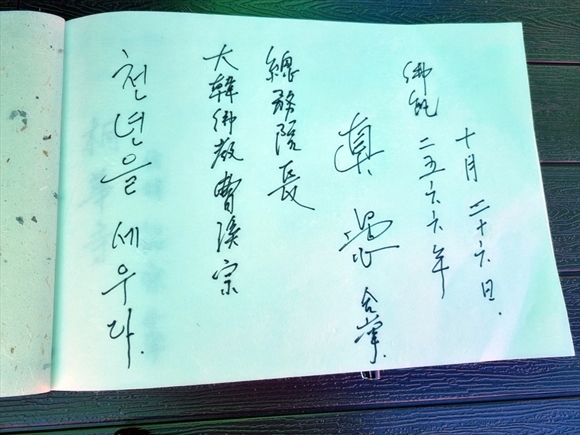 천년을 세우다.
大韓佛教曹溪宗
總務院長
真愚 合掌
佛紀 二五六六年
十月 二十六日.